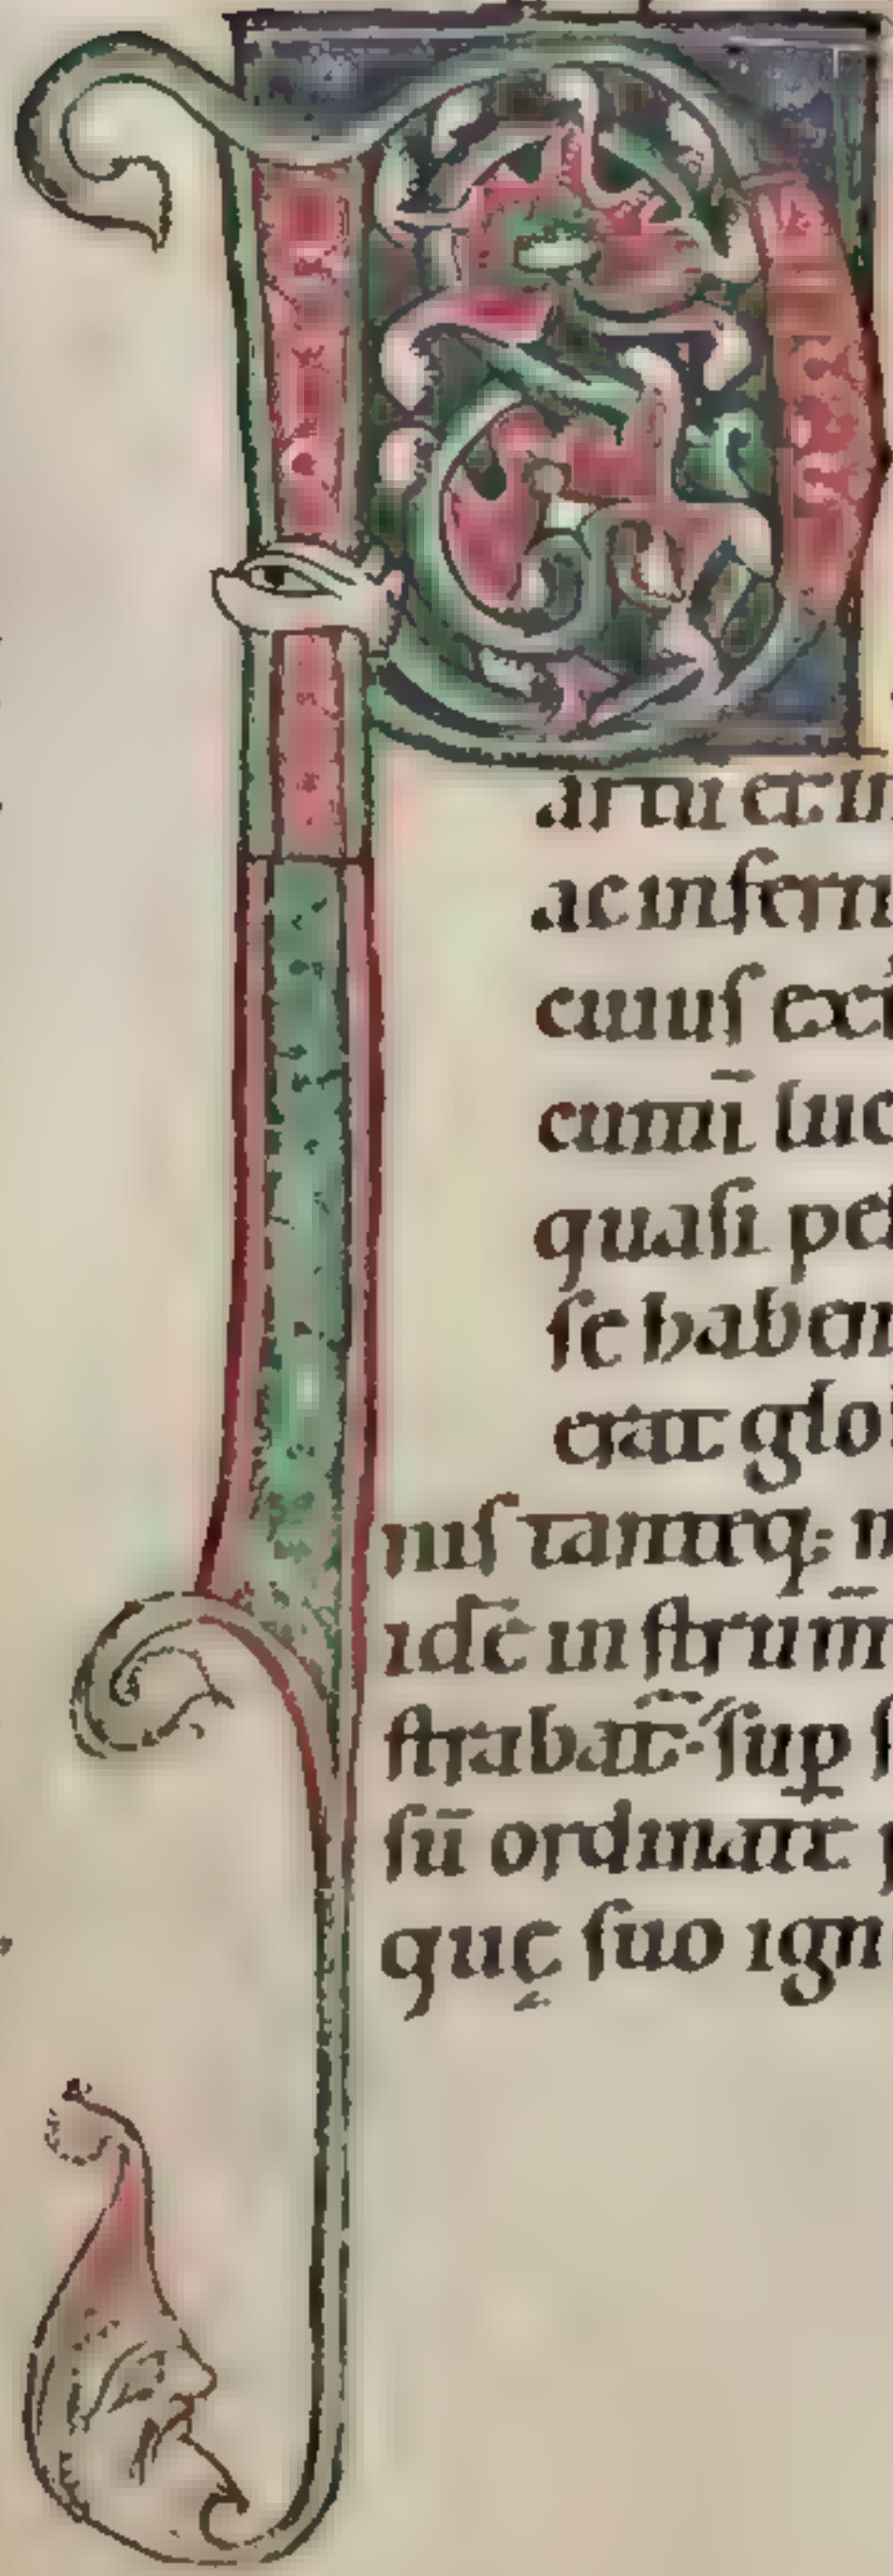 P
arni et in
ac infern
cuius exti
cumī luc
quasi pet
se haben
erat glo
nis tanteq; m
idē in strum̄
strabat̄ sup̲ s
sū ordinatē p
quę suo ign